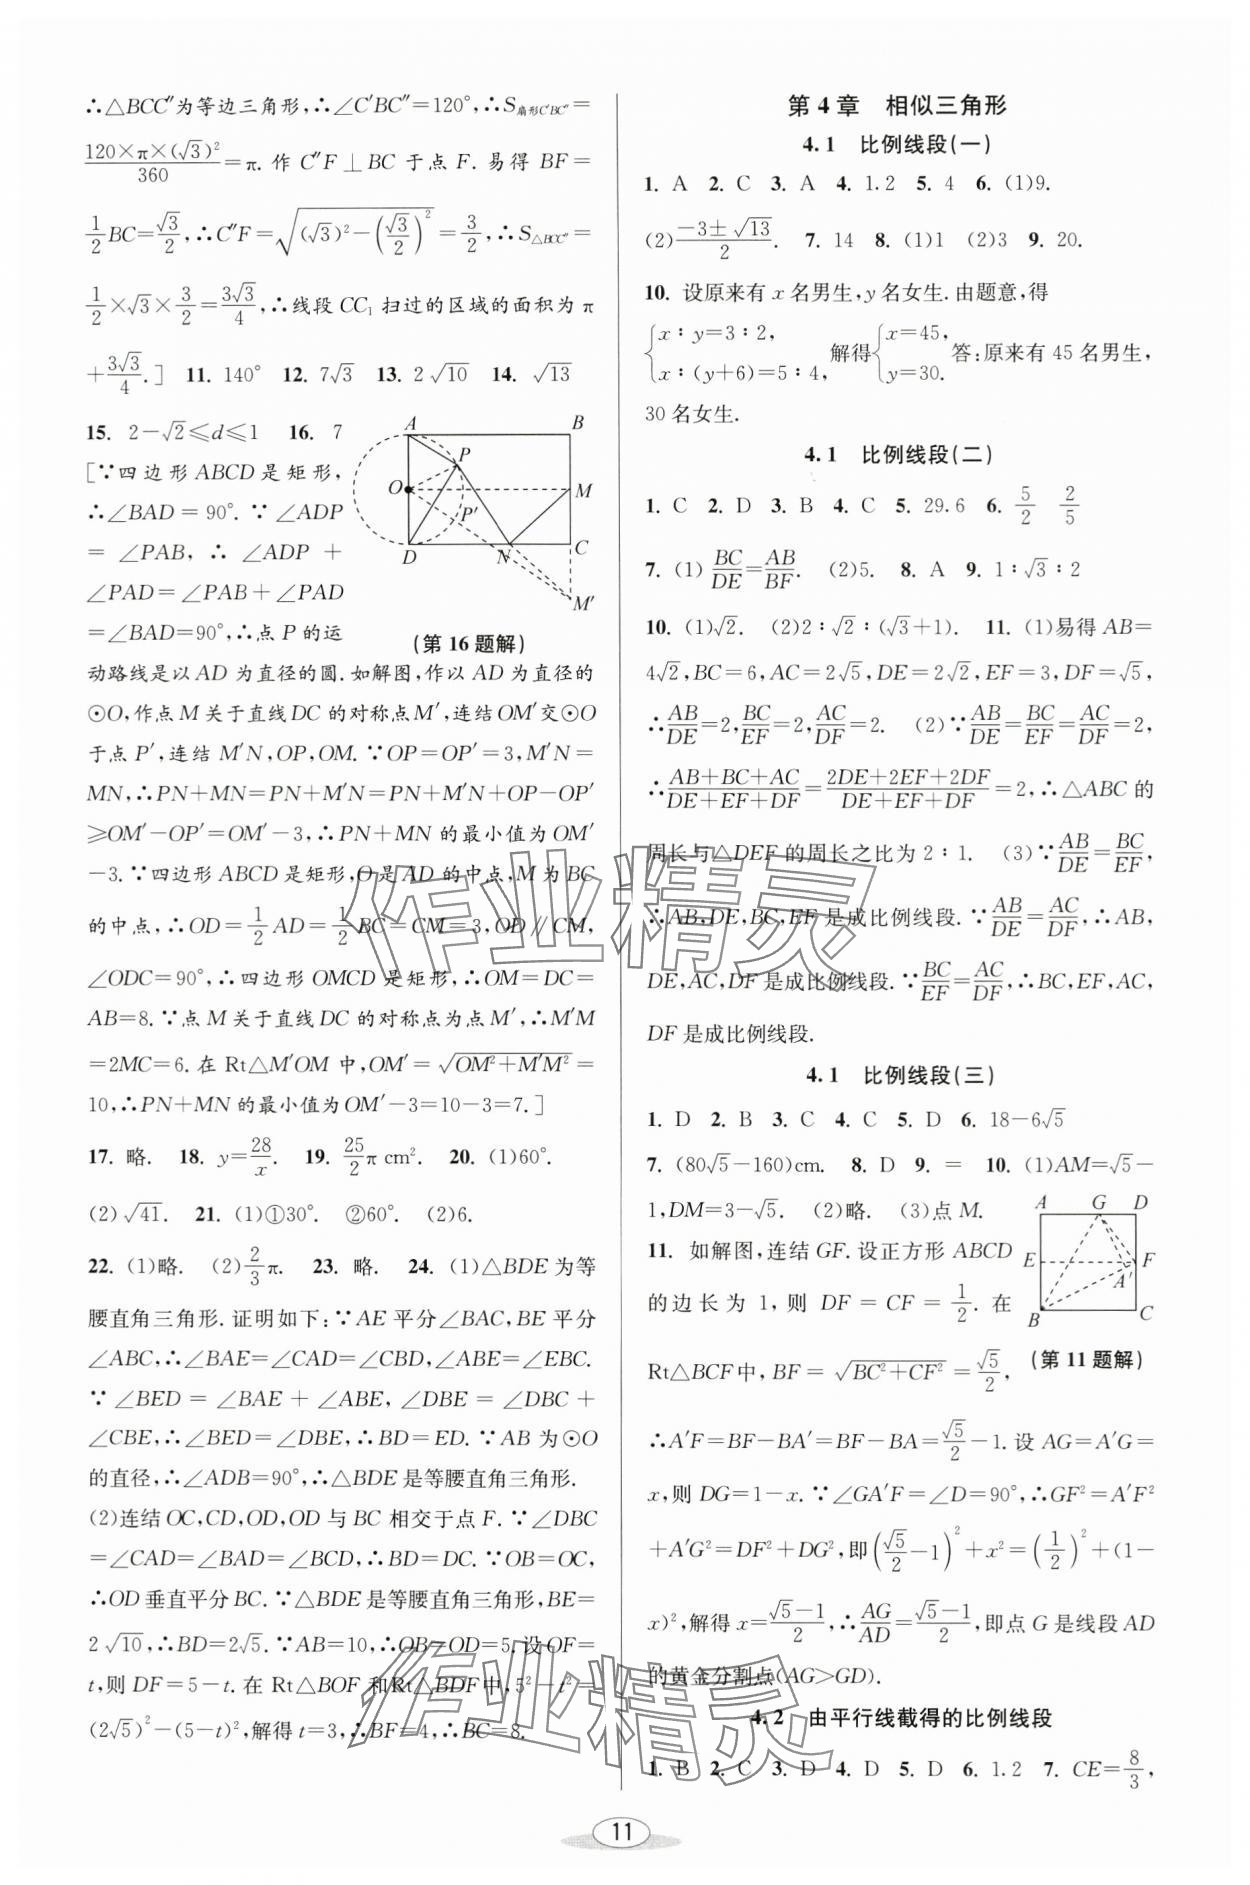 ∴△BCC″为等边三角形,∴∠C′BC″=120°,∴S扇形C′BC″=
120×π×(√3)²/360=π. 作 C″F⊥BC 于点 F. 易得 BF=
1/2 BC=√3/2,∴C″F=√((√3)²-(√3/2)²)=3/2,∴S△BCC″=
1/2×√3×3/2=3√3/4,∴线段 CC₁ 扫过的区域的面积为 π
+3√3/4.] 11. 140° 12. 7√3 13. 2√10 14. √13
15. 2-√2≤d≤1 16. 7
[∵四边形 ABCD 是矩形,
∴∠BAD=90°. ∵∠ADP
=∠PAB,∴∠ADP+
∠PAD=∠PAB+∠PAD
=∠BAD=90°,∴点 P 的运
A B P O M P′ D N C M′
(第 16 题解)
动路线是以 AD 为直径的圆. 如解图,作以 AD 为直径的
⊙O,作点 M 关于直线 DC 的对称点 M′,连结 OM′交⊙O
于点 P′,连结 M′N,OP,OM. ∵OP=OP′=3,M′N=
MN,∴PN+MN=PN+M′N=PN+M′N+OP-OP′
≥OM′-OP′=OM′-3,∴PN+MN 的最小值为 OM′
-3. ∵四边形 ABCD 是矩形,O 是 AD 的中点,M 为 BC
的中点,∴OD=1/2 AD=1/2 BC=CM=3,OD∥CM,
∠ODC=90°,∴四边形 OMCD 是矩形,∴OM=DC=
AB=8. ∵点 M 关于直线 DC 的对称点为点 M′,∴M′M
=2MC=6. 在 Rt△M′OM 中,OM′=√(OM²+M′M²)=
10,∴PN+MN 的最小值为 OM′-3=10-3=7.]
17. 略. 18. y=28/x. 19. 25/2 π cm². 20. (1)60°.
(2)√41. 21. (1)①30°. ②60°. (2)6.
22. (1)略. (2)2/3 π. 23. 略. 24. (1)△BDE 为等
腰直角三角形. 证明如下:∵AE 平分∠BAC,BE 平分
∠ABC,∴∠BAE=∠CAD=∠CBD,∠ABE=∠EBC.
∵∠BED=∠BAE+∠ABE,∠DBE=∠DBC+
∠CBE,∴∠BED=∠DBE,∴BD=ED. ∵AB 为⊙O
的直径,∴∠ADB=90°,∴△BDE 是等腰直角三角形.
(2)连结 OC,CD,OD,OD 与 BC 相交于点 F. ∵∠DBC
=∠CAD=∠BAD=∠BCD,∴BD=DC. ∵OB=OC,
∴OD 垂直平分 BC. ∵△BDE 是等腰直角三角形,BE=
2√10,∴BD=2√5. ∵AB=10,∴OB=OD=5. 设 OF=
t,则 DF=5-t. 在 Rt△BOF 和Rt△BDF 中,5²-t²=
(2√5)²-(5-t)²,解得 t=3,∴BF=4,∴BC=8.
第 4 章 相似三角形
4.1 比例线段(一)
1. A 2. C 3. A 4. 1.2 5. 4 6. (1)9.
(2)(-3±√13)/2. 7. 14 8. (1)1 (2)3 9. 20.
10. 设原来有 x 名男生,y 名女生. 由题意,得
{x∶y=3∶2, x∶(y+6)=5∶4, 解得{x=45, y=30. 答:原来有 45 名男生,
30 名女生.
4.1 比例线段(二)
1. C 2. D 3. B 4. C 5. 29.6 6. 5/2 2/5
7. (1) BC/DE=AB/BF. (2)5. 8. A 9. 1∶√3∶2
10. (1)√2. (2)2∶√2∶(√3+1). 11. (1)易得 AB=
4√2,BC=6,AC=2√5,DE=2√2,EF=3,DF=√5,
∴AB/DE=2,BC/EF=2,AC/DF=2. (2)∵AB/DE=BC/EF=AC/DF=2,
∴(AB+BC+AC)/(DE+EF+DF)=(2DE+2EF+2DF)/(DE+EF+DF)=2,∴△ABC 的
周长与△DEF 的周长之比为 2∶1. (3)∵AB/DE=BC/EF,
∴AB,DE,BC,EF 是成比例线段. ∵AB/DE=AC/DF,∴AB,
DE,AC,DF 是成比例线段. ∵BC/EF=AC/DF,∴BC,EF,AC,
DF 是成比例线段.
4.1 比例线段(三)
1. D 2. B 3. C 4. C 5. D 6. 18-6√5
7. (80√5-160)cm. 8. D 9. = 10. (1)AM=√5-
1,DM=3-√5. (2)略. (3)点 M.
11. 如解图,连结 GF. 设正方形 ABCD
的边长为 1,则 DF=CF=1/2. 在
A G D E F A′ B C
(第 11 题解)
Rt△BCF 中,BF=√(BC²+CF²)=√5/2,
∴A′F=BF-BA′=BF-BA=√5/2-1. 设 AG=A′G=
x,则 DG=1-x. ∵∠GA′F=∠D=90°,∴GF²=A′F²
+A′G²=DF²+DG²,即(√5/2-1)²+x²=(1/2)²+(1-
x)²,解得 x=(√5-1)/2,∴AG/AD=(√5-1)/2,即点 G 是线段 AD
的黄金分割点(AG>GD).
4.2 由平行线截得的比例线段
1. B 2. C 3. D 4. D 5. D 6. 1.2 7. CE=8/3,
作业精灵
作业精灵
11